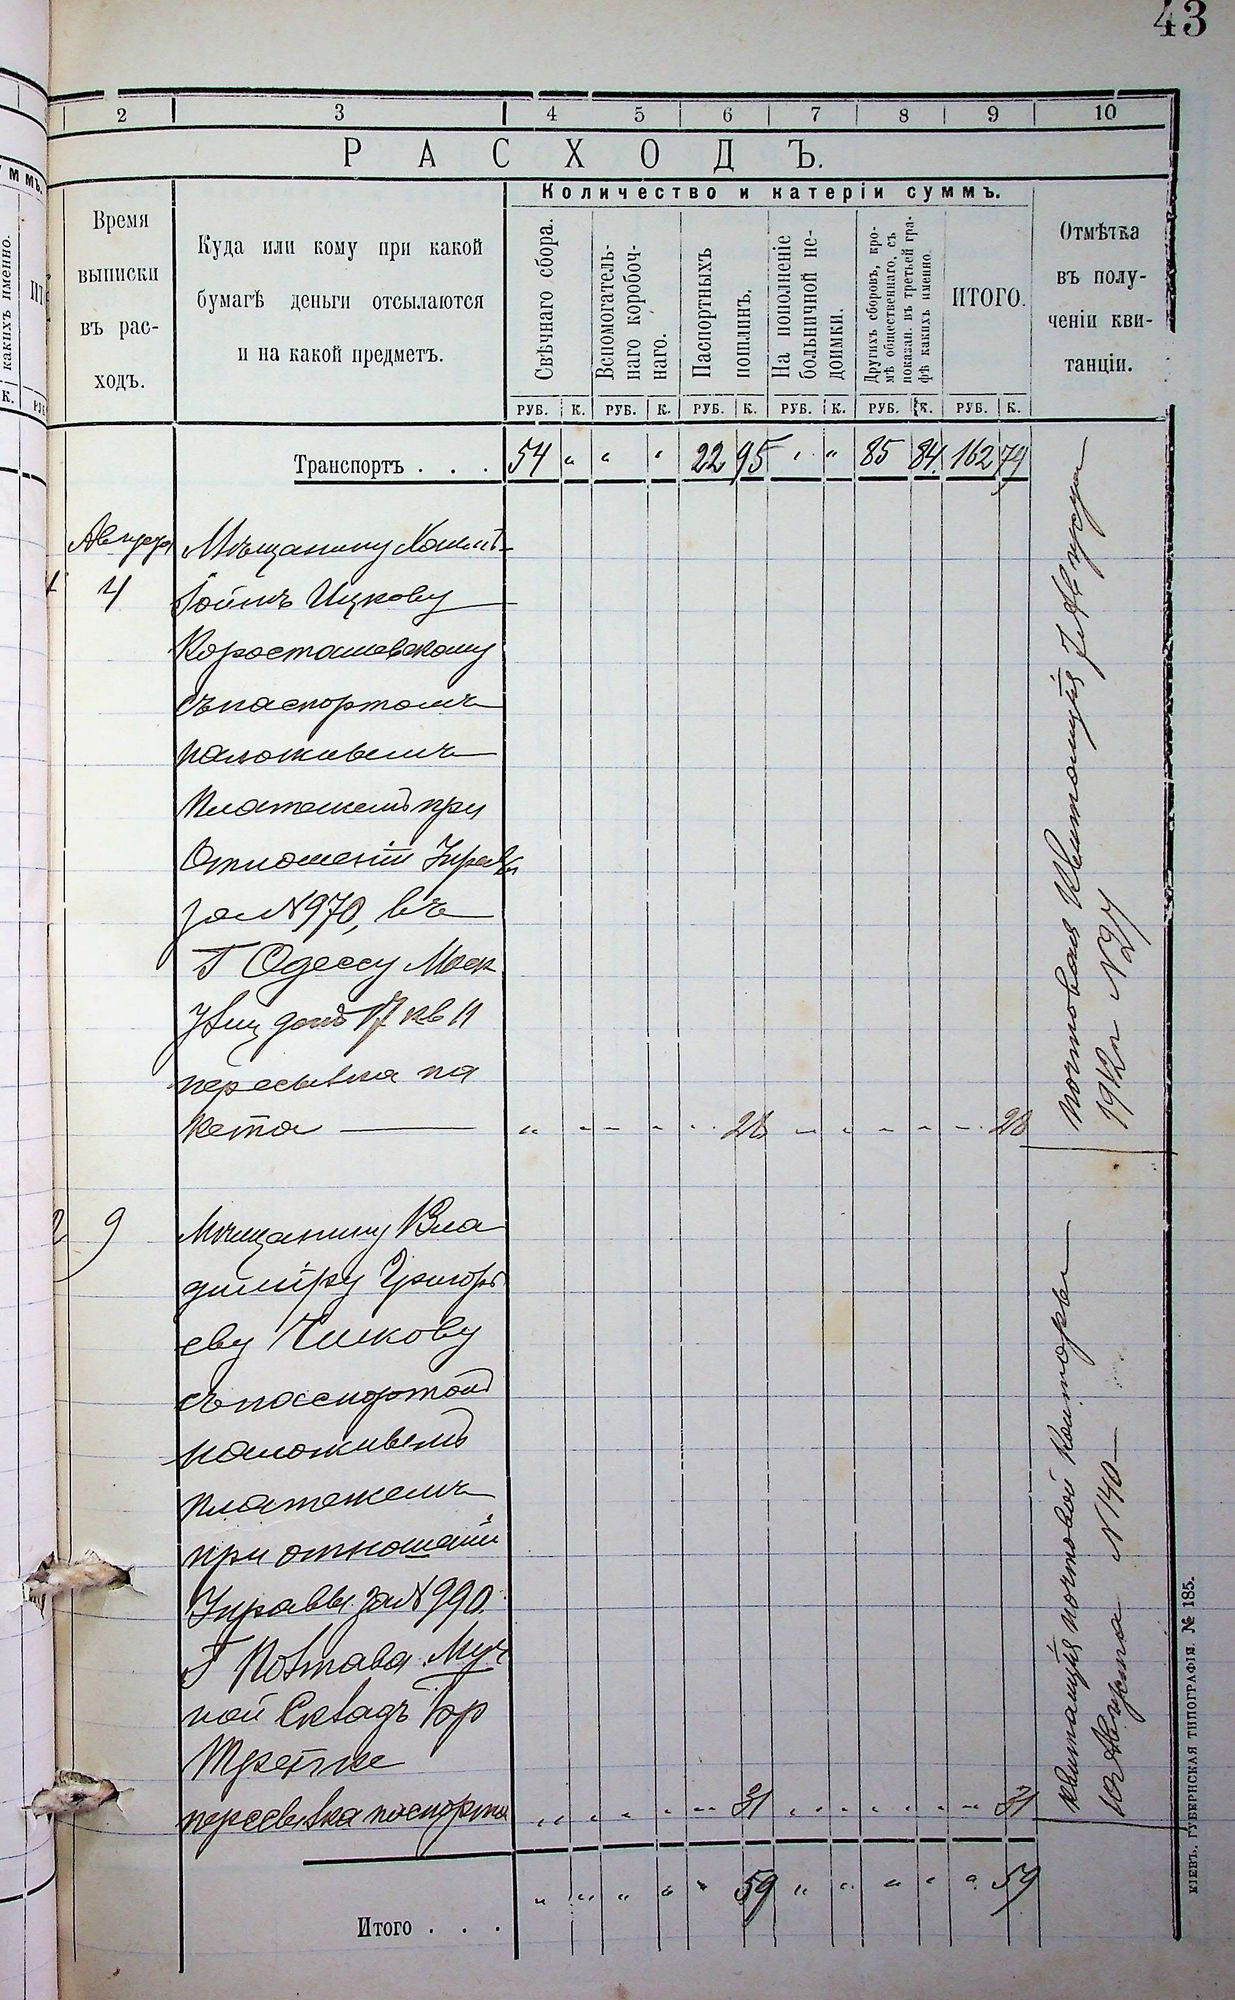 43
2 3 4 5 6 7 8 9 10
РАСХОДЪ.
Количество и катеріи суммъ.
Время
выписки
въ рас-
ходъ.
Куда или кому при какой
бумагѣ деньги отсылаются
и на какой предметъ.
Свѣчнаго сбора.
Вспомогатель-
наго коробоч-
наго.
Паспортныхъ
пошлинъ.
На пополненіе
больничной не-
доимки.
Другихъ сборовъ, кро-
мѣ общественнаго, съ
показан. въ третьей гра-
фѣ какихъ именно.
ИТОГО.
Отмѣтка
въ полу-
ченіи кви-
танціи.
РУБ. К. РУБ. К. РУБ. К. РУБ. К. РУБ. К. РУБ. К.
Транспортъ . . . 54 „ „ „ 22 95 „ „ 85 84 162 79
Августа Мѣщанину
4 Ицкову
Коростошевскому
съ паспортомъ
наложивемъ
платежемъ при
Отношеніи
за № 970, въ
Г Одессу
домъ 17 кв 11
пересывка па
кета — 28 28
почтовая Квитанція 7 Августа
1912 г № 27
9 Мѣщанину Вла
димиру Григорь
еву Чижову
съ паспортомъ
наложивемъ
платежемъ
при отношеніи
за № 990.
Г Повтава Муч
ной Сквадъ
пересывка паспорта 31 31
квитанція почтовой конторы
10 Августа № 140 —
Итого . . . 59 59
КІЕВЪ, ГУБЕРНСКАЯ ТИПОГРАФІЯ. № 185.